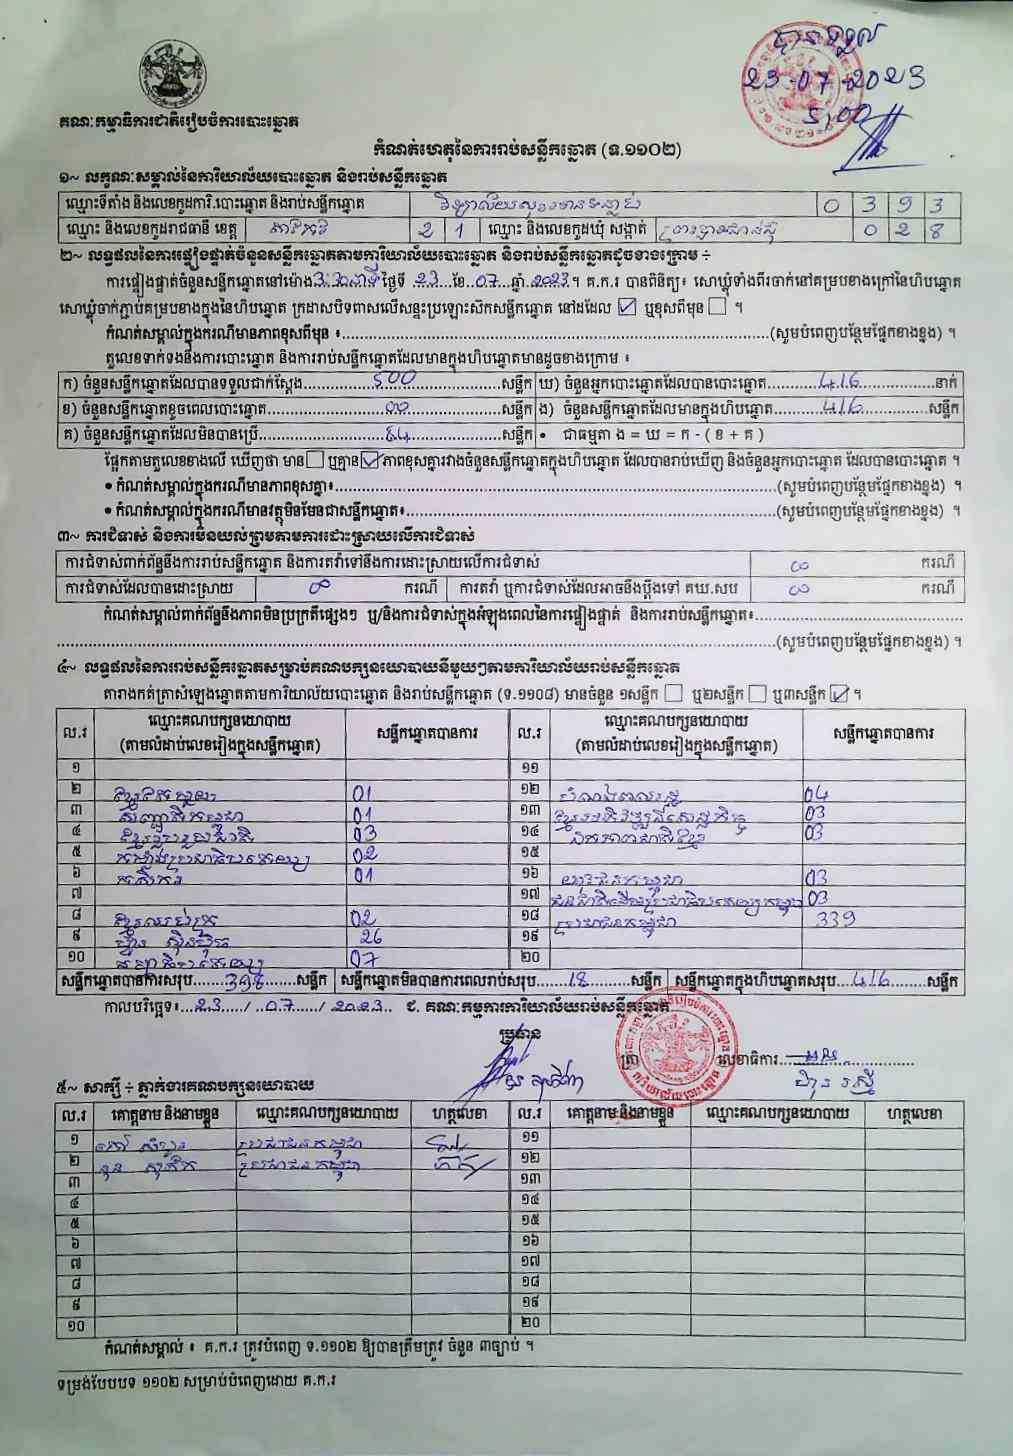 បានទទួល
23-07-2023
5,00
គណៈកម្មាធិការជាតិរៀបចំការបោះឆ្នោត
កំណត់ហេតុនៃការរាប់សន្លឹកឆ្នោត (ទ.១១០២)
១~ លក្ខណៈសម្គាល់នៃការិយាល័យបោះឆ្នោត និងរាប់សន្លឹកឆ្នោត
ឈ្មោះទីតាំង និងលេខកូដការិ.បោះឆ្នោត និងរាប់សន្លឹកឆ្នោត 0 3 9 3
ឈ្មោះ និងលេខកូដរាជធានី ខេត្ត តាកែវ 2 1 ឈ្មោះ និងលេខកូដឃុំ សង្កាត់ 0 2 8
២~ លទ្ធផលនៃការផ្ទៀងផ្ទាត់ចំនួនសន្លឹកឆ្នោតតាមការិយាល័យបោះឆ្នោត និងរាប់សន្លឹកឆ្នោតដូចខាងក្រោម ÷
ការផ្ទៀងផ្ទាត់ចំនួនសន្លឹកឆ្នោតនៅម៉ោង ថ្ងៃទី 23 ខែ 07 ឆ្នាំ 2023 ។ គ.ក.រ បានពិនិត្យ៖ សោឃ្លុំទាំងពីរចាក់នៅគម្របខាងក្រៅនៃហិបឆ្នោត
សោឃ្លុំចាក់ភ្ជាប់គម្របខាងក្នុងនៃហិបឆ្នោត ក្រដាសបិទពាសលើសន្ទះប្រឡោះសិកសន្លឹកឆ្នោត នៅដដែល ☑ ឬខុសពីមុន ☐ ។
កំណត់សម្គាល់ក្នុងករណីមានភាពខុសពីមុន ៖ (សូមបំពេញបន្ថែមផ្នែកខាងខ្នង) ។
តួលេខទាក់ទងនឹងការបោះឆ្នោត និងការរាប់សន្លឹកឆ្នោតដែលមានក្នុងហិបឆ្នោតមានដូចខាងក្រោម ៖
ក) ចំនួនសន្លឹកឆ្នោតដែលបានទទួលជាក់ស្តែង 500 សន្លឹក ឃ) ចំនួនអ្នកបោះឆ្នោតដែលបានបោះឆ្នោត 416 នាក់
ខ) ចំនួនសន្លឹកឆ្នោតខូចពេលបោះឆ្នោត 00 សន្លឹក ង) ចំនួនសន្លឹកឆ្នោតដែលមានក្នុងហិបឆ្នោត 416 សន្លឹក
គ) ចំនួនសន្លឹកឆ្នោតដែលមិនបានប្រើ 84 សន្លឹក • ជាធម្មតា ង = ឃ = ក - ( ខ + គ )
ផ្អែកតាមតួលេខខាងលើ ឃើញថា មាន ☐ ឬគ្មាន ☑ ភាពខុសគ្នារវាងចំនួនសន្លឹកឆ្នោតក្នុងហិបឆ្នោត ដែលបានរាប់ឃើញ និងចំនួនអ្នកបោះឆ្នោត ដែលបានបោះឆ្នោត ។
• កំណត់សម្គាល់ក្នុងករណីមានភាពខុសគ្នា៖ (សូមបំពេញបន្ថែមផ្នែកខាងខ្នង) ។
• កំណត់សម្គាល់ក្នុងករណីមានវត្ថុមិនមែនជាសន្លឹកឆ្នោត៖ (សូមបំពេញបន្ថែមផ្នែកខាងខ្នង) ។
៣~ ការជំទាស់ និងការមិនយល់ព្រមតាមការដោះស្រាយលើការជំទាស់
ការជំទាស់ពាក់ព័ន្ធនឹងការរាប់សន្លឹកឆ្នោត និងការតវ៉ាទៅនឹងការដោះស្រាយលើការជំទាស់ 00 ករណី
ការជំទាស់ដែលបានដោះស្រាយ 00 ករណី ការតវ៉ា ឬការជំទាស់ដែលអាចនឹងប្តឹងទៅ គឃ.សប 00 ករណី
កំណត់សម្គាល់ពាក់ព័ន្ធនឹងភាពមិនប្រក្រតីផ្សេងៗ ឬ/និងការជំទាស់ក្នុងអំឡុងពេលនៃការផ្ទៀងផ្ទាត់ និងការរាប់សន្លឹកឆ្នោត៖
(សូមបំពេញបន្ថែមផ្នែកខាងខ្នង) ។
៤~ លទ្ធផលនៃការរាប់សន្លឹកឆ្នោតសម្រាប់គណបក្សនយោបាយនីមួយៗតាមការិយាល័យរាប់សន្លឹកឆ្នោត
តារាងកត់ត្រាសំឡេងឆ្នោតតាមការិយាល័យបោះឆ្នោត និងរាប់សន្លឹកឆ្នោត (ទ.១១០៨) មានចំនួន ១សន្លឹក ☐ ឬ២សន្លឹក ☐ ឬ៣សន្លឹក ☑ ។
ល.រ ឈ្មោះគណបក្សនយោបាយ (តាមលំដាប់លេខរៀងក្នុងសន្លឹកឆ្នោត) សន្លឹកឆ្នោតបានការ ល.រ ឈ្មោះគណបក្សនយោបាយ (តាមលំដាប់លេខរៀងក្នុងសន្លឹកឆ្នោត) សន្លឹកឆ្នោតបានការ
១ ១១
២ 01 ១២ 04
៣ 01 ១៣ ខ្មែរអភិវឌ្ឍន៍សេដ្ឋកិច្ច 03
៤ ខ្មែររួបរួមជាតិ 03 ១៤ ឯកភាពជាតិខ្មែរ 03
៥ កម្លាំងប្រជាធិបតេយ្យ 02 ១៥
៦ កសិករ 01 ១៦ យុវជនកម្ពុជា 03
៧ ១៧ ជនជាតិដើមប្រជាធិបតេយ្យកម្ពុជា 03
៨ 02 ១៨ ប្រជាជនកម្ពុជា 339
៩ ហ្វ៊ុនស៊ិនប៉ិច 26 ១៩
១០ 07 ២០
សន្លឹកឆ្នោតបានការសរុប 398 សន្លឹក សន្លឹកឆ្នោតមិនបានការពេលរាប់សរុប 18 សន្លឹក សន្លឹកឆ្នោតក្នុងហិបឆ្នោតសរុប 416 សន្លឹក
កាលបរិច្ឆេទ៖ 23 / 07 / 2023 ជ. គណៈកម្មការការិយាល័យរាប់សន្លឹកឆ្នោត
ប្រធាន ត្រា លេខាធិការ
៥~ សាក្សី ÷ ភ្នាក់ងារគណបក្សនយោបាយ
ល.រ គោត្តនាម និងនាមខ្លួន ឈ្មោះគណបក្សនយោបាយ ហត្ថលេខា ល.រ គោត្តនាម និងនាមខ្លួន ឈ្មោះគណបក្សនយោបាយ ហត្ថលេខា
១ ប្រជាជនកម្ពុជា ១១
២ ប្រជាជនកម្ពុជា ១២
៣ ១៣
៤ ១៤
៥ ១៥
៦ ១៦
៧ ១៧
៨ ១៨
៩ ១៩
១០ ២០
កំណត់សម្គាល់ ៖ គ.ក.រ ត្រូវបំពេញ ទ.១១០២ ឱ្យបានត្រឹមត្រូវ ចំនួន ៣ច្បាប់ ។
ទម្រង់បែបបទ ១១០២ សម្រាប់បំពេញដោយ គ.ក.រ